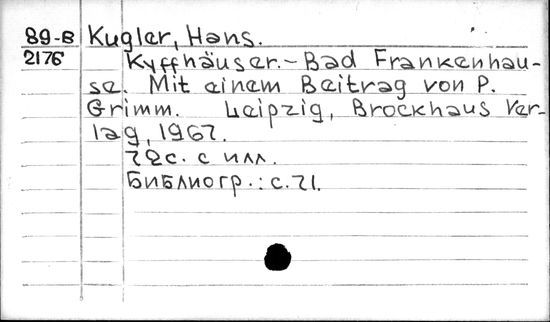 89-В Kugler, Hans.
2176 Kyffhäuser.-Bad Frankenhau-
se. Mit einem Beitrag von P.
Grimm. Leipzig, Brockhaus Ver-
lag, 1967.
72с. с илл.
Библиогр.: с.71.